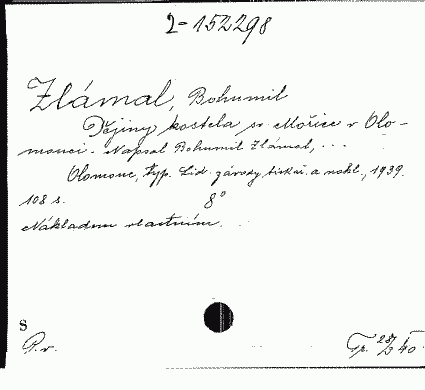 2-152298
Zlámal, Bohumil
Dějiny kostela sv. Mořice v Olo-
mouci. Napsal Bohumil Zlámal, ...
Olomouc, typ. Lid. závody tiskař. a nakl., 1939.
108 s. 8°
Nákladem vlastním.
S
P.v.